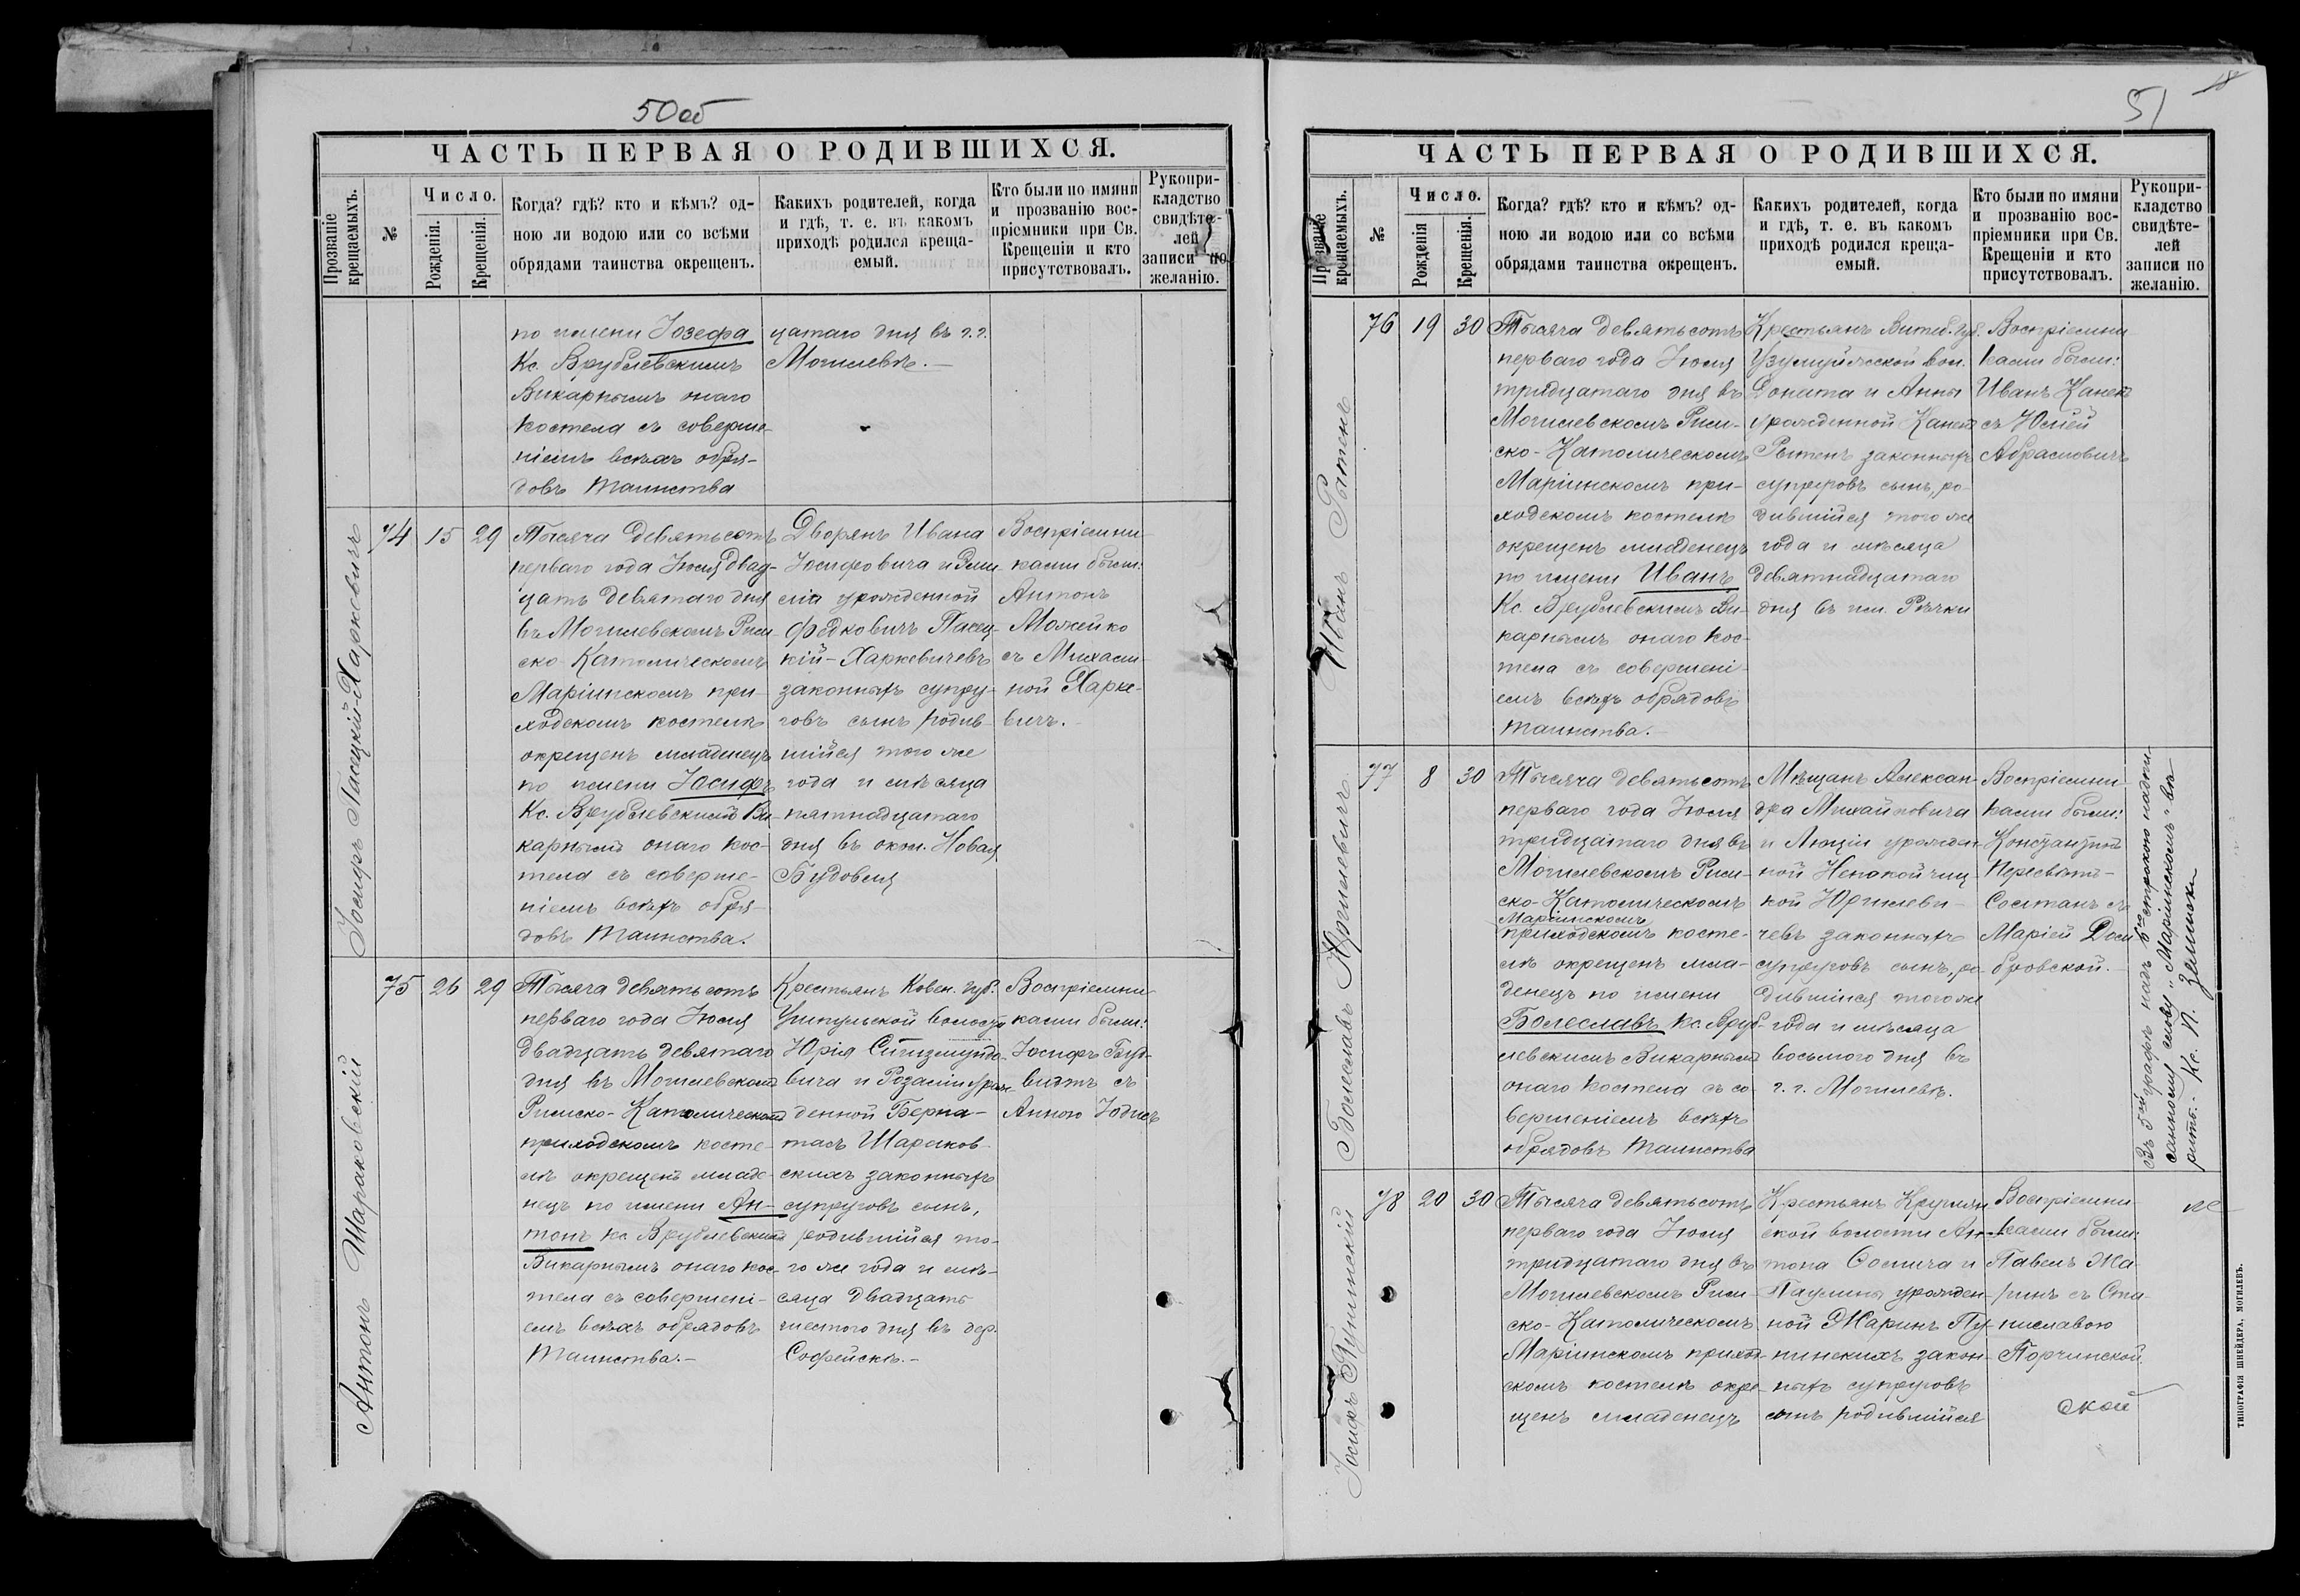 50об
ЧАСТЬ ПЕРВАЯ О РОДИВШИХСЯ.
Прозваніе крещаемыхъ.
№
Число.
Рожденія.
Крещенія.
Когда? гдѣ? кто и кѣмъ? од-
ною ли водою или со всѣми
обрядами таинства окрещенъ.
Какихъ родителей, когда
и гдѣ, т. е. въ какомъ
приходѣ родился креща-
емый.
Кто были по имяни
и прозванію вос-
пріемники при Св.
Крещеніи и кто
присутствовалъ.
Рукопри-
кладство
свидѣте-
лей
записи по
желанію.
по имени Іозефа
Кс. Врублевскимъ
Викарнымъ онаго
костела съ соверше-
ніемъ всѣхъ обря-
довъ таинства
цатаго дня въ г.г.
Могилевѣ.—
Іосифъ Пасецкій-Харкевичъ
74
15
29
Тысяча девятьсотъ
перваго года Іюля двад-
цать девятаго дня
въ Могилевскомъ Рим-
ско-Католическомъ
Маріинскомъ при-
ходскомъ костелѣ
окрещенъ младенецъ
по имени Іосифъ
Кс. Врублевскимъ Ви-
карнымъ онаго кос-
тела съ соверше-
ніемъ всѣхъ обря-
довъ таинства.
Дворянъ Ивана
Іосифовича и Эми
ліи урожденной
Федковичъ Пасец-
кій-Харкевичевъ
законныхъ супру-
говъ сынъ, родив-
шійся того же
года и мѣсяца
пятнадцатаго
дня въ окол. Новая
Будовля
Воспріемни-
ками были:
Антонъ
Можейко
съ Михали-
ной Харке-
вичъ.
Антонъ Шараковскій
75
26
29
Тысяча девятьсотъ
перваго года Іюля
двадцать девятаго
дня въ Могилевскомъ
Римско-Католическомъ
приходскомъ косте-
лѣ окрещенъ младе-
нецъ по имени Ан-
тонъ кс. Врублевскимъ
Викарнымъ онаго кос-
тела съ совершені-
емъ всѣхъ обрядовъ
таинства.—
Крестьянъ Ковен. губ.
Ушпульской волости
Юрія Сигизмундо-
вича и Розаліи урож-
денной Берна-
тасъ Шараков-
скихъ законныхъ
супруговъ сынъ,
родившійся то-
го же года и мѣ-
сяца двадцать
шестого дня въ дер.
Софейскѣ.—
Воспріемни-
ками были:
Іосифъ
съ
Анною
51
ЧАСТЬ ПЕРВАЯ О РОДИВШИХСЯ.
Прозваніе крещаемыхъ.
№
Число.
Рожденія
Крещенія.
Когда? гдѣ? кто и кѣмъ? од-
ною ли водою или со всѣми
обрядами таинства окрещенъ.
Какихъ родителей, когда
и гдѣ, т. е. въ какомъ
приходѣ родился креща-
емый.
Кто были по имяни
и прозванію вос-
пріемники при Св.
Крещеніи и кто
присутствовалъ.
Рукопри-
кладство
свидѣте-
лей
записи по
желанію.
Иванъ
76
19
30
Тысяча девятьсотъ
перваго года Іюля
тридцатаго дня въ
Могилевскомъ Рим-
ско-Католическомъ
Маріинскомъ при-
ходскомъ костелѣ
окрещенъ младенецъ
по имени Иванъ
Кс. Врублевскимъ Ви-
карнымъ онаго кос-
тела съ совершені-
емъ всѣхъ обрядовъ
таинства.—
Крестьянъ Витеб. губ.
вол.
Доната и Анны
урожденной Канепъ
законныхъ
супруговъ сынъ, ро-
дившійся того же
года и мѣсяца
девятнадцатаго
дня въ им. Рѣчки
Воспріемни
ками были:
Иванъ Канепъ
съ Юліей
Абрамовичъ
Болеславъ Юргилевичъ
77
8
30
Тысяча девятьсотъ
перваго года Іюля
тридцатаго дня въ
Могилевскомъ Рим-
ско-Католическомъ
Маріинскомъ
приходскомъ косте-
лѣ окрещенъ мла-
денецъ по имени
Болеславъ Кс. Вруб-
левскимъ Викарнымъ
онаго костела съ со-
вершеніемъ всѣхъ
обрядовъ таинства
Мѣщанъ Алексан-
дра Михайловича
и Люціи урожден-
ной
Юргилеви-
чевъ законныхъ
супруговъ сынъ, ро-
дившійся того же
года и мѣсяца
восьмого дня въ
г. г. Могилевѣ.
Воспріемни-
ками были:
Константинъ
Пересвѣтъ-
Солтанъ съ
Маріей Дом
бровской.—
Въ 5ой графѣ надъ 6ою строкою надпи-
санному слову „Маріинскомъ" вѣ-
рить.— Кс. П.
Іосифъ Пупинскій
78
20
30
Тысяча девятьсотъ
перваго года Іюля
тридцатаго дня въ
Могилевскомъ Рим-
ско-Католическомъ
Маріинскомъ приход-
скомъ костелѣ окре-
щенъ младенецъ
Крестьянъ Круглян-
ской волости Ан-
тона Осипа и
Паулины урожден-
ной Жаринъ Пу-
пинскихъ закон-
ныхъ супруговъ
сынъ родившійся
Воспріемни
ками были:
Павелъ Жа-
ринъ съ Ста-
ниславою
Порчинской
ской
ТИПОГРАФІЯ ШНЕЙДЕРА, МОГИЛЕВЪ.